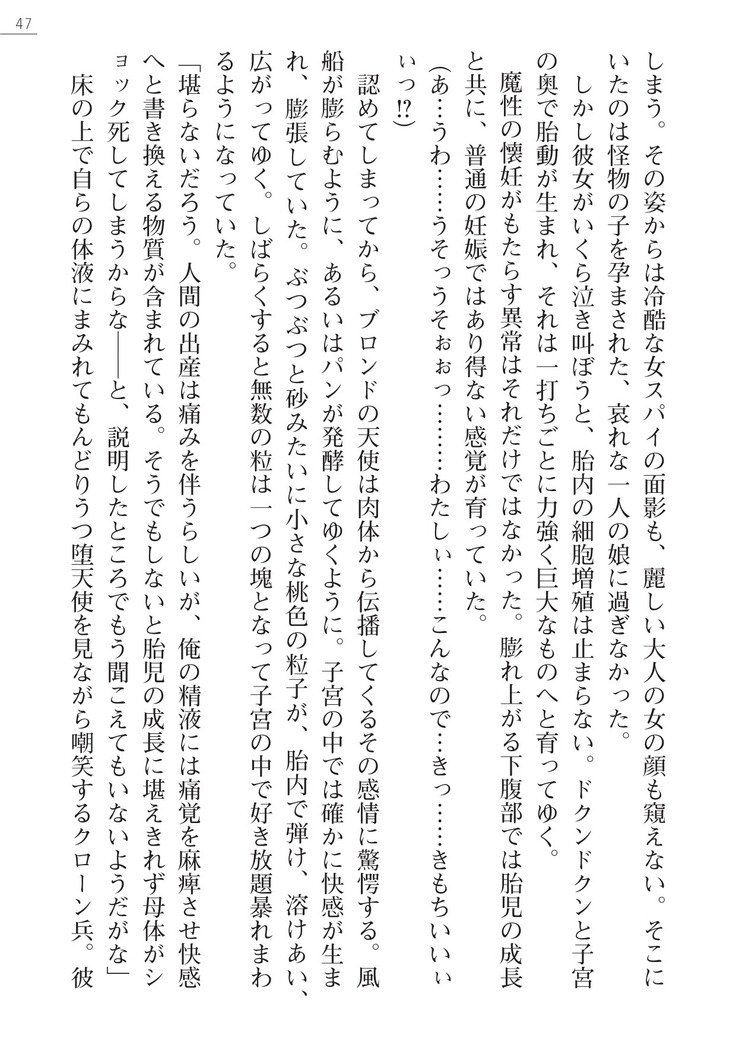 47
しまう。その姿からは冷酷な女スパイの面影も、麗しい大人の女の顔も窺えない。そこに
いたのは怪物の子を孕まされた、哀れな一人の娘に過ぎなかった。
しかし彼女がいくら泣き叫ぼうと、胎内の細胞増殖は止まらない。ドクンドクンと子宮
の奥で胎動が生まれ、それは一打ちごとに力強く巨大なものへと育ってゆく。
魔性の懐妊がもたらす異常はそれだけではなかった。膨れ上がる下腹部では胎児の成長
と共に、普通の妊娠ではあり得ない感覚が育っていた。
(あ…うわ……うそっうそぉぉっ………わたしぃ……こんなので…きっ……きもちいいぃ
ぃっ!?)
認めてしまってから、ブロンドの天使は肉体から伝播してくるその感情に驚愕する。風
船が膨らむように、あるいはパンが発酵してゆくように。子宮の中では確かに快感が生ま
れ、膨張していた。ぶつぶつと砂みたいに小さな桃色の粒子が、胎内で弾け、溶けあい、
広がってゆく。しばらくすると無数の粒は一つの塊となって子宮の中で好き放題暴れまわ
るようになっていた。
「堪らないだろう。人間の出産は痛みを伴うらしいが、俺の精液には痛覚を麻痺させ快感
へと書き換える物質が含まれている。そうでもしないと胎児の成長に堪えきれず母体がシ
ョック死してしまうからな――と、説明したところでもう聞こえてもいないようだがな」
床の上で自らの体液にまみれてもんどりうつ堕天使を見ながら嘲笑するクローン兵。彼